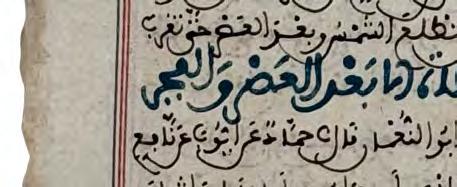 تطلع الشمس وبعد العصر حتى تغرب
إلا بعد العصر والفجر
ابو النعمن قال حماد عن ايوب عن نافع